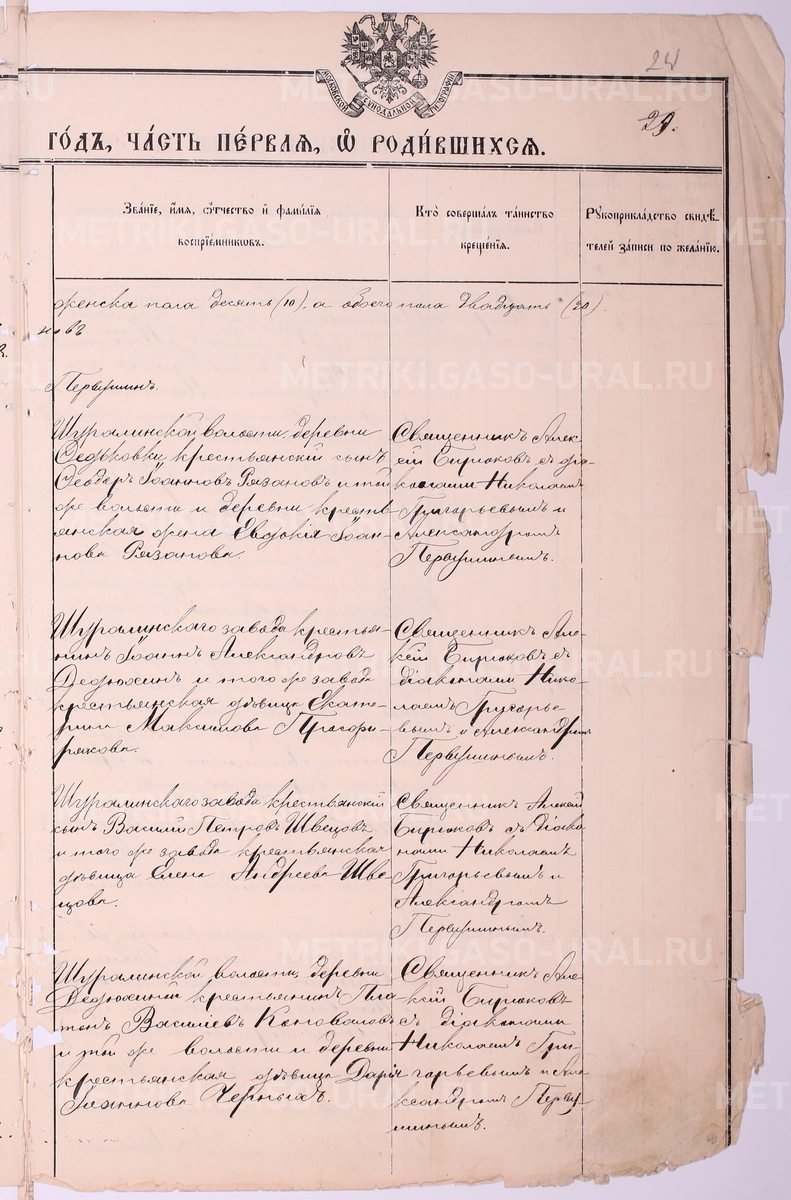 24
29.
МОСКОВСКОЙ СѴНОДАЛЬНОЙ ТИПОГРАФІИ
ГО́ДЪ, ЧА́СТЬ ПЕ́РВАЯ, Ѡ҆ РОДИ́ВШИХСЯ.
Зва́нїе, и҆́мя, ѻ҆́тчество и҆ фами́лїя
воспрїе́мникѡвъ.
Кто̀ соверша́лъ та́инство
креще́нїя.
Рꙋкоприкла́дство свидѣ́-
телей за́писи по жела́нїю.
женска пола десять (10), а обоего пола двадцать (20).
Первушинъ.
Шуралинской волости, деревни
Федьковки, крестьянскій сынъ
Ѳеодоръ Іоанновъ Рязановъ и той
же волости и деревни кресть-
янская жена Евдокія Іоан-
нова Рязанова.
Священникъ Алек-
сѣй Бирюковъ съ діа-
конами Николаемъ
Григорьевымъ и
Александромъ
Первушинымъ.
Шуралинскаго завода крестья-
нинъ Іоаннъ Александровъ
Дедюхинъ и того же завода
крестьянская дѣвица Екате-
рина Максимова
Священникъ Але-
ксѣй Бирюковъ съ
діаконами Нико-
лаемъ Григорье-
вымъ и Александромъ
Первушинымъ.
Шуралинскаго завода крестьянскій
сынъ Василій Петровъ Швецовъ
и того же завода крестьянская
дѣвица Елена Андреева Шве-
цова.
Священникъ Алексѣй
Бирюковъ съ діако-
нами Николаемъ
Григорьевымъ и
Александромъ
Первушинымъ.
Шуралинской волости, деревни
Дедюхиной крестьянинъ Пла-
тонъ Василіевъ Коноваловъ
и той же волости и деревни
крестьянская дѣвица Дарія
Іоаннова Черныхъ.
Священникъ Але-
ксѣй Бирюковъ
съ діаконами
Николаемъ Гри-
горьевымъ и Але-
ксандромъ Перву-
шинымъ.
METRIKI.GASO-URAL.RU